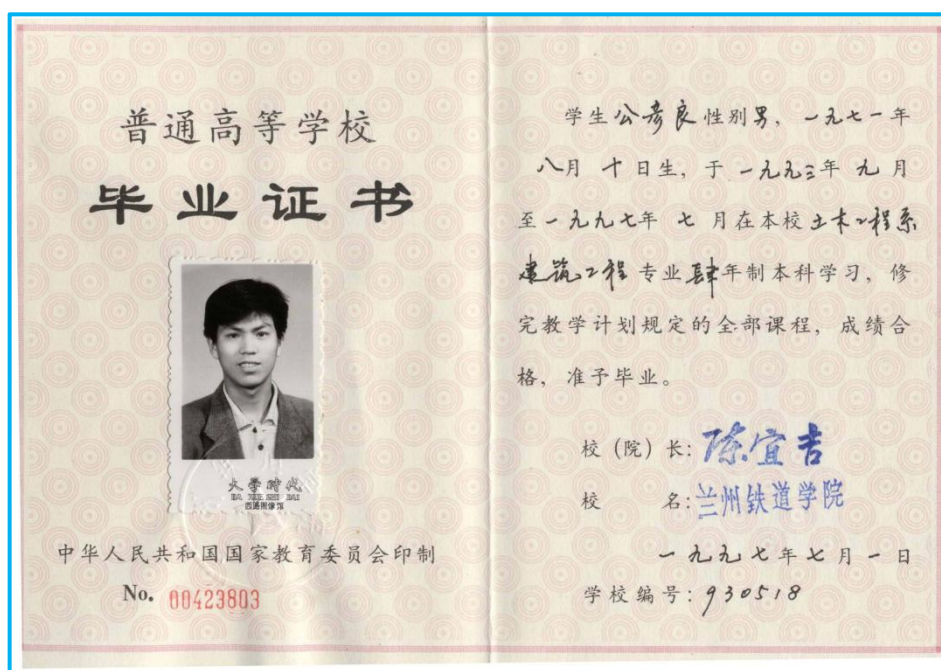 普通高等学校
毕业证书
大学时代
DA XUE SHI DAI
西路照像馆
中华人民共和国国家教育委员会印制
No. 00423803
学生公彦良性别男，一九七一年
八月十日生，于一九九三年九月
至一九九七年七月在本校土木工程系
建筑工程专业肆年制本科学习，修
完教学计划规定的全部课程，成绩合
格，准予毕业。
校（院）长：陈宜吉
校名：兰州铁道学院
一九九七年七月一日
学校编号：930518